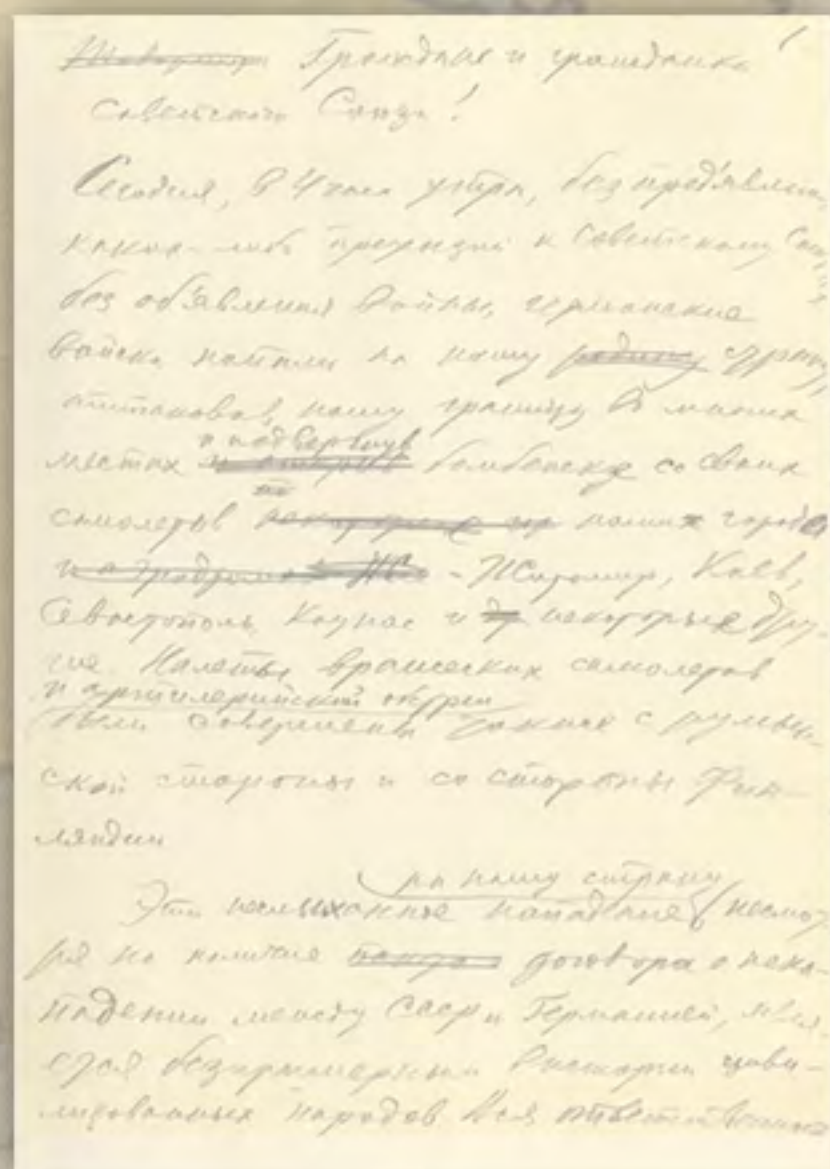 Граждане и гражданки!
Советского Союза!
Сегодня, в 4 часа утра, без предъявления
каких-либо претензий к Советскому Союзу,
без об'явления войны, германские
войска напали на нашу родину страну,
атаковав нашу границу во многих
местах и подвергнув бомбежке со своих
самолетов наши города
- Житомир, Киев,
Севастополь, Каунас и некоторые дру-
гие. Налеты вражеских самолетов
и артиллерийский обстрел
были совершены также с румын-
ской стороны и со стороны Фин-
ляндии
на нашу страну
Это неслыханное нападение, несмот-
ря на наличие договора о нена-
падении между СССР и Германией, явля-
ется безпримерным в истории циви-
лизованных народов. Вся ответственность